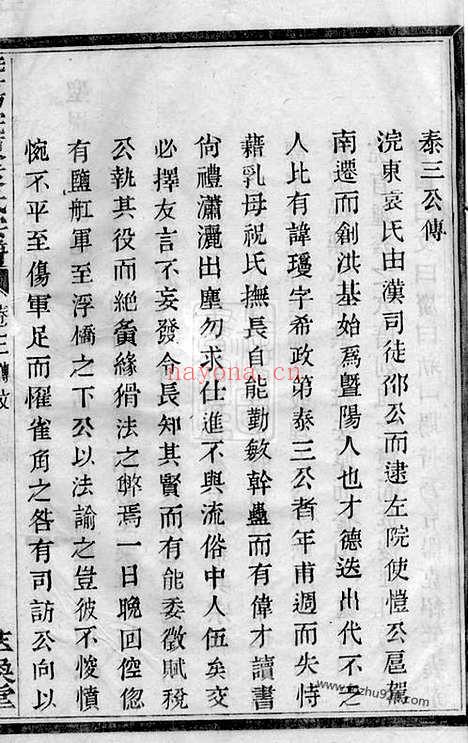 泰三公傳
浣東袁氏由漢司徒邵公而逮左院使愷公扈駕
南遷而創洪基始爲暨陽人也才德迭出代不乏
人比有諱璦字希政第泰三公者年甫週而失恃
藉乳母祝氏撫長自能勤敏幹蠱而有偉才讀書
尙禮瀟灑出塵勿求仕進不與流俗中人伍矣交
必擇友言不妄發令長知其賢而有能委徵賦稅
公執其役而絶夤緣猾法之弊焉一日晚回倥偬
有鹽舡軍至浮橋之下公以法諭之豈彼不悛憤
惋不平至傷軍足而懼雀角之咎有司訪公向以
卷之三傳攷
nayona.cn